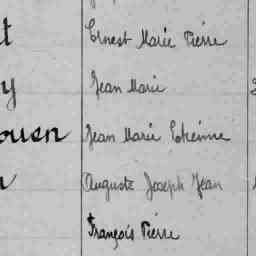 t Ernest Marie Pierre
y Jean Marie
ouen Jean Marie Etienne
Auguste Joseph Jean
François Pierre